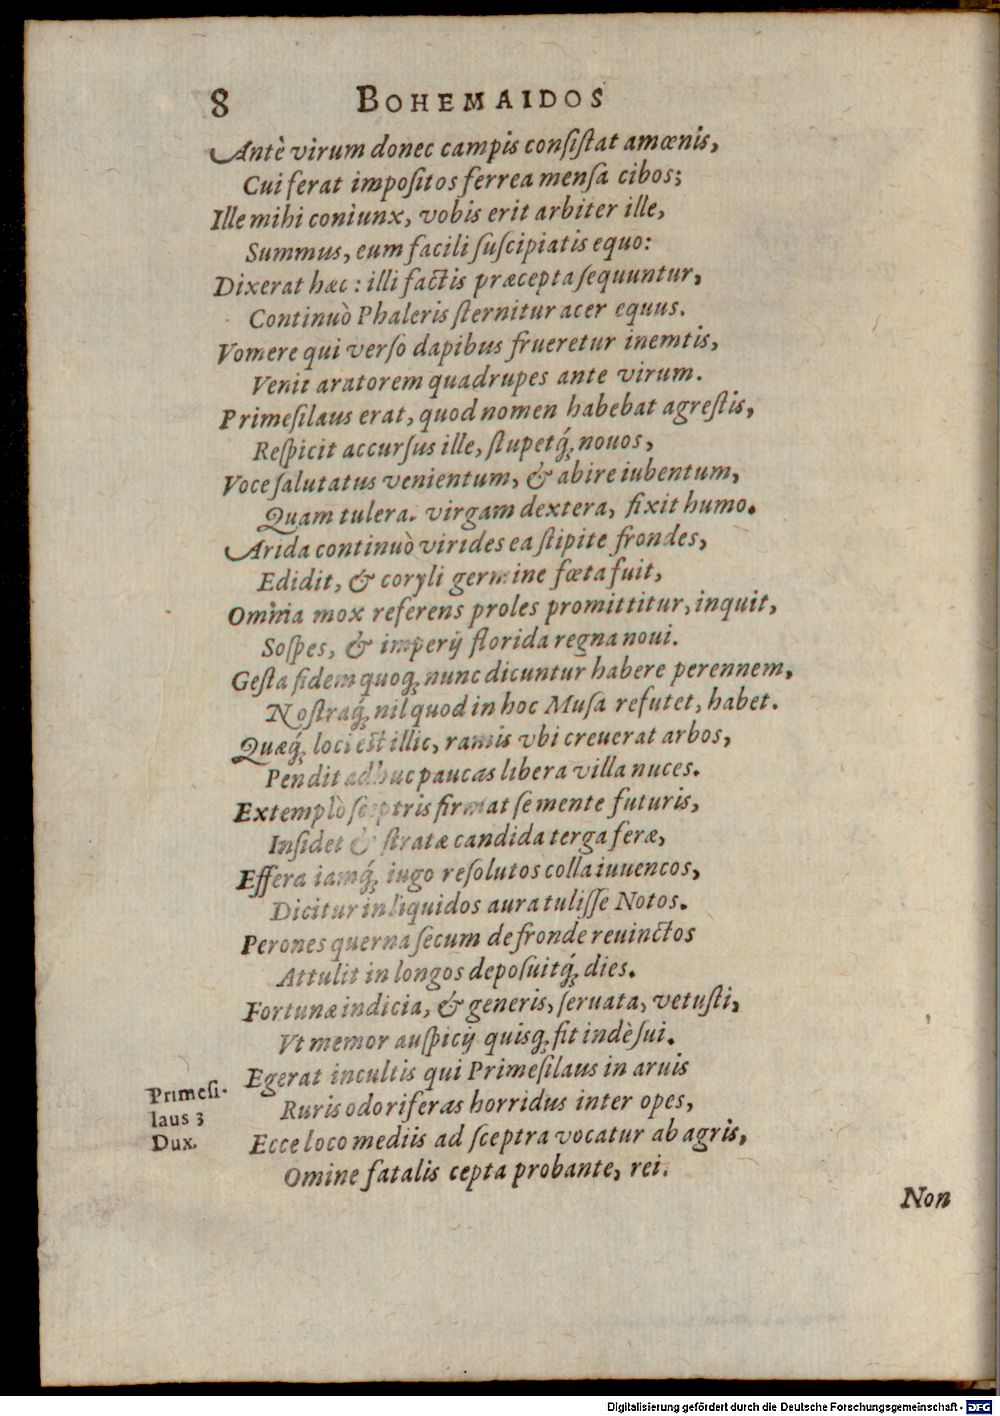 8 BOHEMAIDOS
Antè virum donec campis consiſtat amœnis,
Cui ferat impoſitos ferrea menſa cibos;
Ille mihi coniunx, vobis erit arbiter ille,
Summus, eum facili ſuſcipiatis equo:
Dixerat hæc: illi factis præcepta ſequuntur,
Continuò Phaleris ſternitur acer equus.
Vomere qui verſo dapibus frueretur inemtis,
Venit aratorem quadrupes ante virum.
Primeſilaus erat, quod nomen habebat agreſtis,
Reſpicit accurſus ille, ſtupetq́; nouos,
Voce ſalutatus venientum, & abire iubentum,
Quam tulera. virgam dextera, fixit humo.
Arida continuò virides ea ſtipite frondes,
Edidit, & coryli germine fœta fuit,
Omnia mox referens proles promittitur, inquit,
Soſpes, & imperij florida regna noui.
Geſta fidem quoq; nunc dicuntur habere perennem,
Noſtraq́; nil quod in hoc Muſa refutet, habet.
Quæq́; loci eſt illic, ramis vbi creuerat arbos,
Pendit adhuc paucas libera villa nuces.
Extemplò ſceptris firmat ſe mente futuris,
Inſidet & ſtratæ candida terga feræ,
Effera iamq́; iugo reſolutos colla iuuencos,
Dicitur in liquidos aura tuliſſe Notos.
Perones querna ſecum de fronde reuinctos
Attulit in longos depoſuitq́; dies.
Fortunæ indicia, & generis, ſeruata, vetuſti,
Vt memor auſpicij quisq; fit indè ſui.
Egerat incultis qui Primeſilaus in aruis
Ruris odoriferas horridus inter opes,
Ecce loco mediis ad ſceptra vocatur ab agris,
Omine fatalis cepta probante, rei.
Primeſi-
laus 3
Dux.
Non
Digitalisierung gefördert durch die Deutsche Forschungsgemeinschaft - DFG